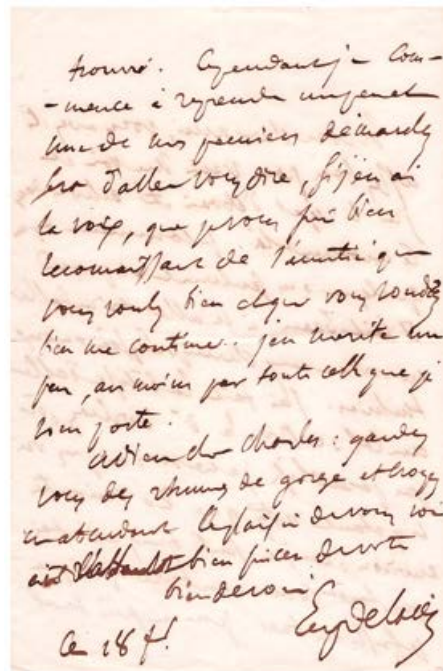 trouvé. Cependant je com-
-mence à reprendre un peu et
une de mes premières démarches
sera d'aller vous dire, si j'en ai
la voix, que je vous suis bien
reconnaissant de l'amitié que
vous voulez bien et que vous voudrez
bien me continuer. j'en mérite un
peu, au moins par toute celle que je
vous porte.
adieu cher Charles : gardez
vous des rhumes de gorge et croyez
en attendant le plaisir de vous voir
bien sincer devoué
bien devoué
Eug Delacroix
Ce 28 f.